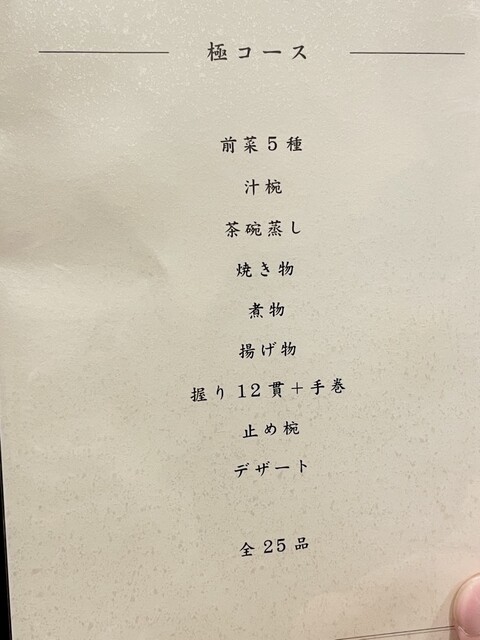 極コース
前菜5種
汁椀
茶碗蒸し
焼き物
煮物
揚げ物
握り12貫+手巻
止め椀
デザート
全25品